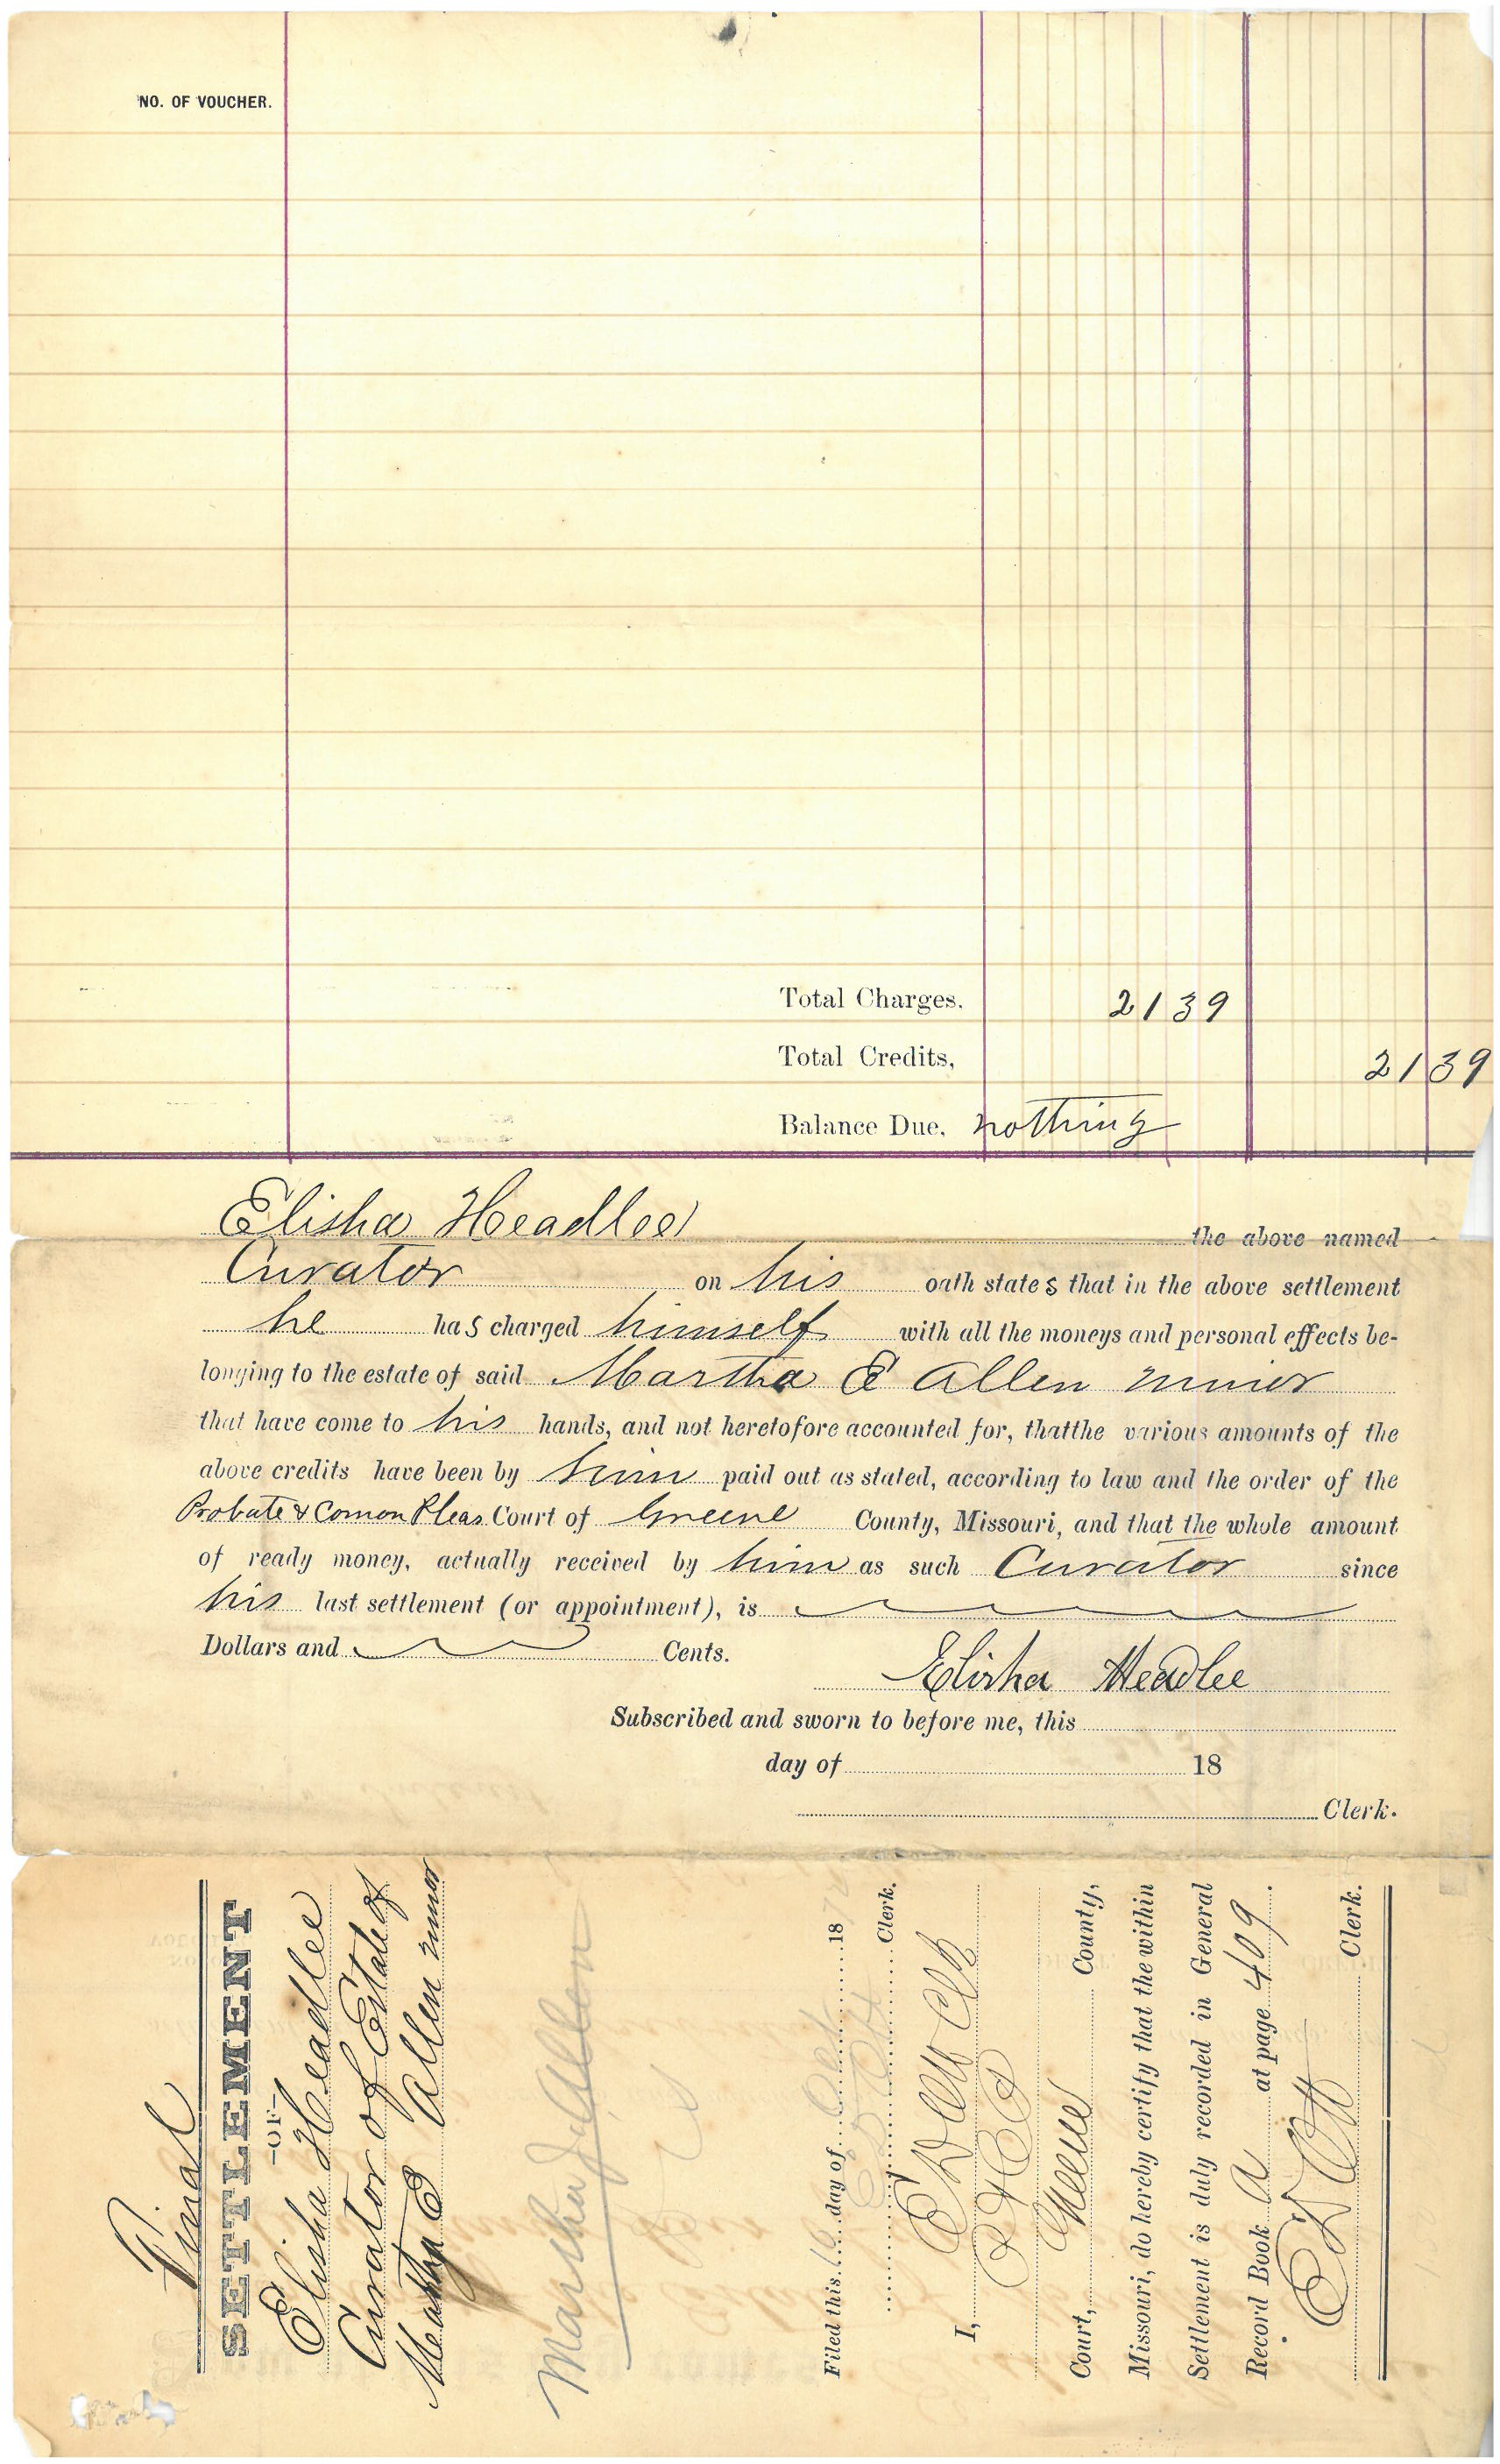 NO. OF VOUCHER.
Total Charges. 2139
Total Credits, 2139
Balance Due. nothing
Elisha Headlee the above named
Curator on his oath states that in the above settlement
he has charged himself with all the moneys and personal effects be-
longing to the estate of said Martha E Allen minor
that have come to his hands, and not heretofore accounted for, thatthe various amounts of the
above credits have been by him paid out as stated, according to law and the order of the
Probate & Comon Pleas Court of Greene County, Missouri, and that the whole amount
of ready money, actually received by him as such Curator since
his last settlement (or appointment), is
Dollars and Cents.
Elisha Headlee
Subscribed and sworn to before me, this
day of 18
Clerk.
Final
SETTLEMENT
-OF-
Elisha Headlee
Curator of Estate of
Martha E Allen minor
Martha J Allen
Filed this 16 day of Oct 18
Clerk.
I, Clk
Court, Greene County,
Missouri, do hereby certify that the within
Settlement is duly recorded in General
Record Book A at page 409.
Clerk.